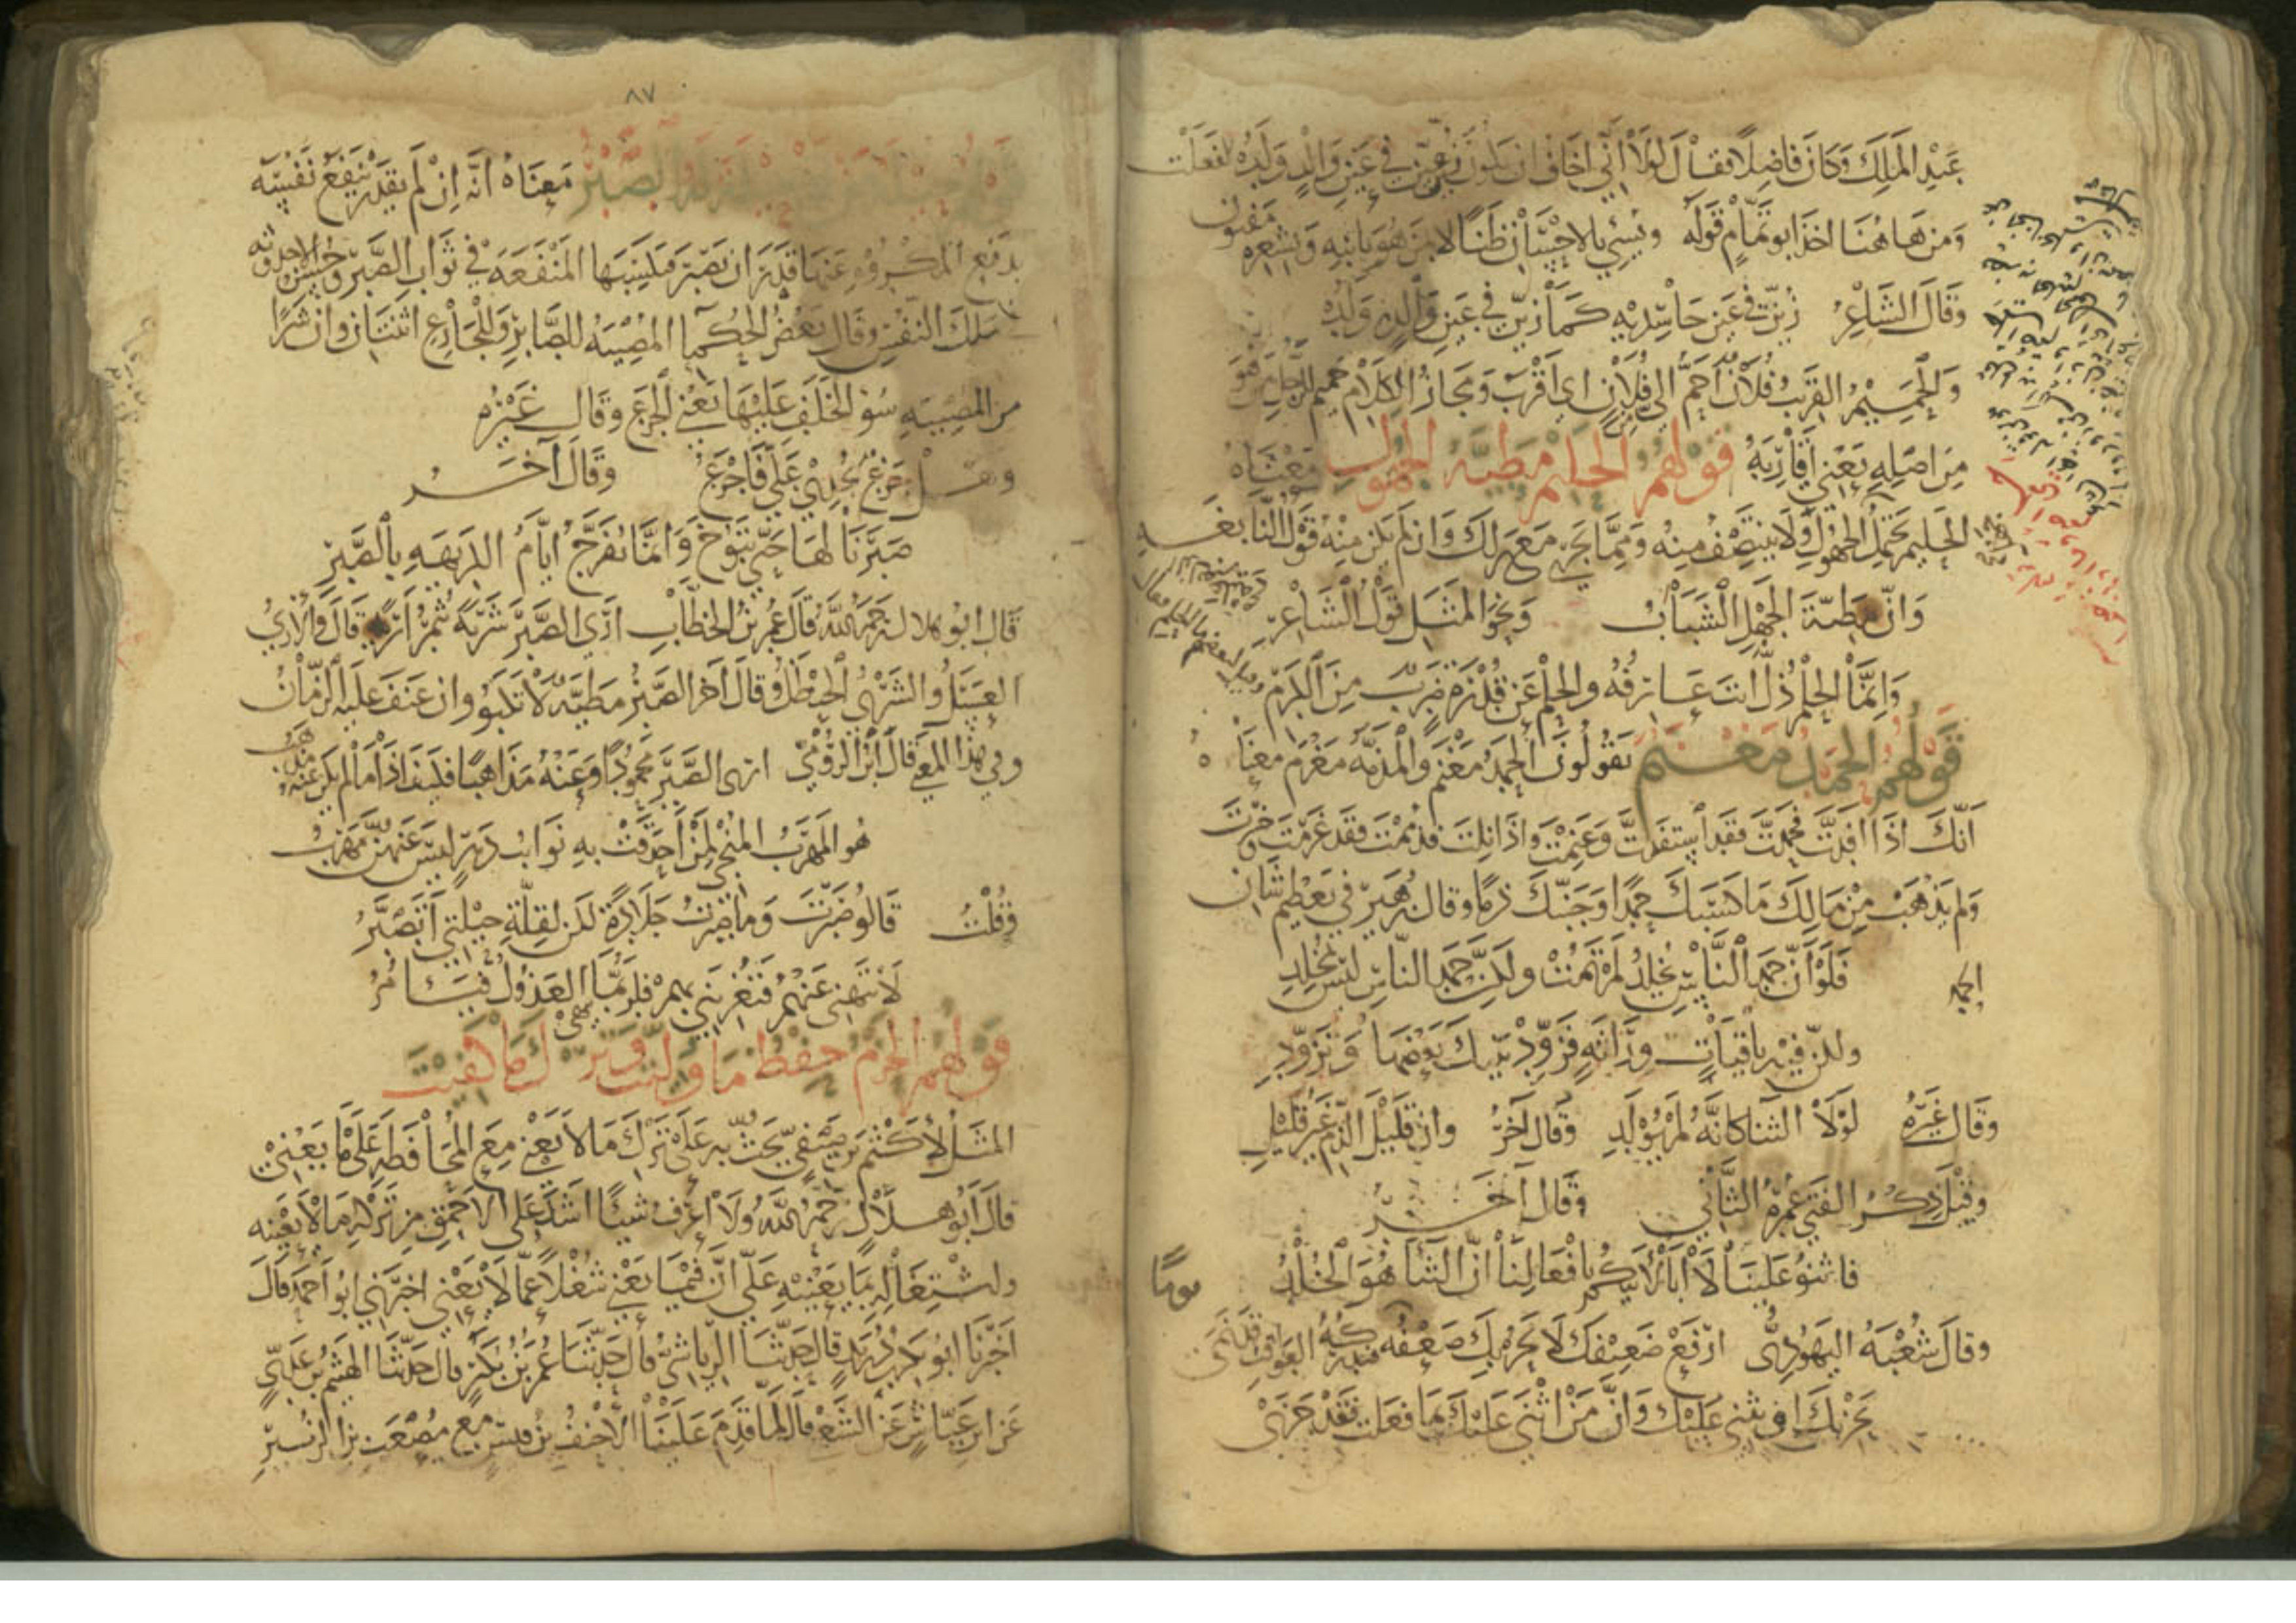 عَبْدِ الْمَلِكِ وَكَانَ فَاضِلًا فَقَالَ لَوْلَا أَنِّي أَخَافُ أَنْ يَكُونَ زُيِّنَ فِي عَيْنِي مَا زُيِّنَ فِي عَيْنِ وَالِدٍ وَلَدُهُ لَفَعَلْتُ
وَمِنْ هَاهُنَا أَخَذَ أَبُو تَمَّامٍ قَوْلَهُ وَيُسِيءُ بِالْإِحْسَانِ ظَنًّا لَا كَمَنْ هُوَ بِابْنِهِ وَبِشِعْرِهِ مَفْتُونُ
وَقَالَ الشَّاعِرُ زُيِّنَ فِي عَيْنِ كَمَا زُيِّنَ فِي عَيْنِ وَالِدٍ وَلَدُهُ
وَالْحَمِيمُ الْقَرِيبُ فُلَانٌ أَحَمُّ إِلَى فُلَانٍ أَي أَقْرَبُ وَمَجَازُ الْكَلَامِ حَمِيمُ الرَّجُلِ مَنْ هُوَ
مِنْ أَصْلِهِ يَعْنِي أَقَارِبَهُ قَوْلُهُمْ الْحَلِيمُ مَطِيَّةُ الْجَهُولِ مَعْنَاهُ
الْحَلِيمُ يَحْتَمِلُ الْجَهُولَ وَلَا يَنْتَصِفُ مِنْهُ وَمِمَّا يَجْرِي مَعَ ذَلِكَ وَإِنْ لَمْ يَكُنْ مِنْهُ قَوْلُ النَّابِغَةِ
وَإِنَّ مَطِيَّةَ الْجَهْلِ الشَّبَابُ وَنَحْوُ الْمَثَلِ قَوْلُ الشَّاعِرِ
وَإِنَّمَا الْحِلْمُ ذُلٌّ أَنْتَ عَارِفُهُ وَالْحِلْمُ عَنْ قُدْرَةٍ ضَرْبٌ مِنَ الْكَرَمِ
قَوْلُهُمْ الْحَمْدُ مَغْنَمٌ يَقُولُونَ الْحَمْدُ مَغْنَمٌ وَالْمَذَمَّةُ مَغْرَمٌ مَعْنَاهُ
أَنَّكَ إِذَا أَفَدْتَ فَحُمِدْتَ فَقَدِ اسْتَفَدْتَ وَغَنِمْتَ وَإِذَا نِلْتَ فَذُمِمْتَ فَقَدْ غَرِمْتَ وَخَسِرْتَ
وَلَمْ يَذْهَبْ مِنْ مَالِكَ مَا كَسَبَكَ حَمْدًا وَجَنَّبَكَ ذَمًّا وَقَالَ زُهَيْرٌ فِي تَعْظِيمِ شَأْنِ
الحمد فَلَوْ أَنَّ حَمْدَ النَّاسِ يُخْلِدُ لَمْ تَمُتْ وَلَكِنَّ حَمْدَ النَّاسِ لَيْسَ بِمُخْلِدِ
وَلَكِنَّ فِيهِ بَاقِيَاتٍ وِرَاثَةً فَزَوِّدْ بَنِيكَ بَعْضَهَا وَتَزَوَّدِ
وَقَالَ غَيْرُهُ لَوْلَا الثَّنَا كَأَنَّهُ لَمْ يُولَدِ وَقَالَ آخَرُ وَإِنَّ قَلِيلَ الذَّمِّ غَيْرُ قَلِيلِ
وَقِيلَ ذِكْرُ الْفَتَى عُمْرُهُ الثَّانِي وَقَالَ آخَرُ
فَأَثْنُوا عَلَيْنَا لَا أَبَا لِأَبِيكُمُ بِأَفْعَالِنَا إِنَّ الثَّنَا هُوَ الْخُلْدُ
وَقَالَ شُعْبَةُ الْيَهُودِيُّ ارْفَعْ ضَعِيفَكَ لَا يَحُرْ بِكَ ضَعْفُهُ يومًا فَتُدْرِكَهُ الْعَوَاقِبُ قَدْ نَمَى
يَجْزِيكَ أَوْ يُثْنِي عَلَيْكَ وَإِنَّ مَنْ أَثْنَى عَلَيْكَ بِمَا فَعَلْتَ فَقَدْ جَزَى
٨٧
الصَّبْرُ مَعْنَاهُ أَنَّهُ إِنْ لَمْ يَقْدِرْ يَنْفَعُ نَفْسَهُ
بِدَفْعِ الْمَكْرُوهِ عَنْهَا قَدَرَ أَنْ يَصْبِرَ فَيُكْسِبَهَا الْمَنْفَعَةَ فِي ثَوَابِ الصَّبْرِ وَحُسْنِ الأحدوثة
مَلَكَ النَّفْسَ وَقَالَ بَعْضُ الْحُكَمَا الْمُصِيبَةُ لِلصَّابِرِ وَلِلْجَازِعِ اثْنَتَانِ وَإِنَّ شَرًّا
مِنَ الْمُصِيبَةِ سُوءُ الْخَلَفِ عَلَيْهَا يَعْنِي الْجَزَعَ وَقَالَ غَيْرُهُ
وَهَلْ جَزَعٌ يُجْدِي عَلَيَّ فَأَجْزَعُ وَقَالَ آخَرُ
صَبَرْنَا لَهَا حَتَّى تَبُوخَ وَإِنَّمَا تُفَرَّجُ أَيَّامُ الْكَرِيهَةِ بِالصَّبْرِ
قَالَ أَبُو هِلَالٍ رَحِمَهُ اللَّهُ قَالَ عُمَرُ بْنُ الْخَطَّابِ أَرَى الصَّبْرَ شَرْيَهُ ثُمَّ أَرْيَهُ قَالَ وَالْأَرْيُ
الْعَسَلُ وَالشَّرْيُ الْحَنْظَلُ وَقَالَ آخَرُ الصَّبْرُ مَطِيَّةٌ لَا تَكْبُو وَإِنْ عَنُفَ عَلَيْهِ الزَّمَانُ
وَفِي هَذَا الْمَعْنَى قَالَ ابْنُ الرُّومِيِّ أَرَى الصَّبْرَ مَحْمُودًا وَعَنْهُ مَذَاهِبًا فَكَيْفَ إِذَا مَا لَمْ يَكُنْ عَنْهُ مَذْهَبُ
هُوَ الْمَهْرَبُ الْمُنْجِي لِمَنْ أَحْدَقَتْ بِهِ نَوَائِبُ دَهْرٍ لَيْسَ عَنْهُنَّ مَهْرَبُ
وَقُلْتُ قَالُوا صَبَرْتَ وَمَا صَبَرْتُ جَلَادَةً لَكِنْ لِقِلَّةِ حِيلَتِي أَتَصَبَّرُ
لَا تَنْهَنِي عَنْهُمْ فَتُغْرِيَنِي بِهِمْ فَلَرُبَّمَا يَنْهَى الْعَذُولُ فَيَأْمُرُ
قَوْلُهُمْ الْحَزْمُ حِفْظُ مَا وُلِّيتَ وَتَرْكُ مَا كُفِيتَ
الْمَثَلُ لِأَكْثَمَ بْنِ صَيْفِيٍّ يَحُثُّ بِهِ عَلَى تَرْكِ مَا لَا يَعْنِي مَعَ الْمُحَافَظَةِ عَلَى مَا يَعْنِي
قَالَ أَبُو هِلَالٍ رَحِمَهُ اللَّهُ وَلَا أَعْرِفُ شَيْئًا أَشَدَّ عَلَى الْأَحْمَقِ مِنْ تَرْكِهِ مَا لَا يَعْنِيهِ
وَاشْتِغَالِهِ بِمَا يَعْنِيهِ عَلَى أَنَّ فِيمَا يَعْنِي شُغْلًا عَمَّا لَا يَعْنِي أَخْبَرَنِي أَبُو أَحْمَدَ قَالَ
أَخْبَرَنَا أَبُو بَكْرِ بْنُ دُرَيْدٍ قَالَ حَدَّثَنَا الرِّيَاشِيُّ قَالَ حَدَّثَنَا عُمَرُ بْنُ بُكَيْرٍ قَالَ حَدَّثَنَا الْهَيْثَمُ بْنُ عَدِيٍّ
عَنِ ابْنِ عَيَّاشٍ عَنِ الشَّعْبِيِّ قَالَ لَمَّا قَدِمَ عَلَيْنَا الْأَحْنَفُ بْنُ قَيْسٍ مَعَ مُصْعَبِ بْنِ الزُّبَيْرِ